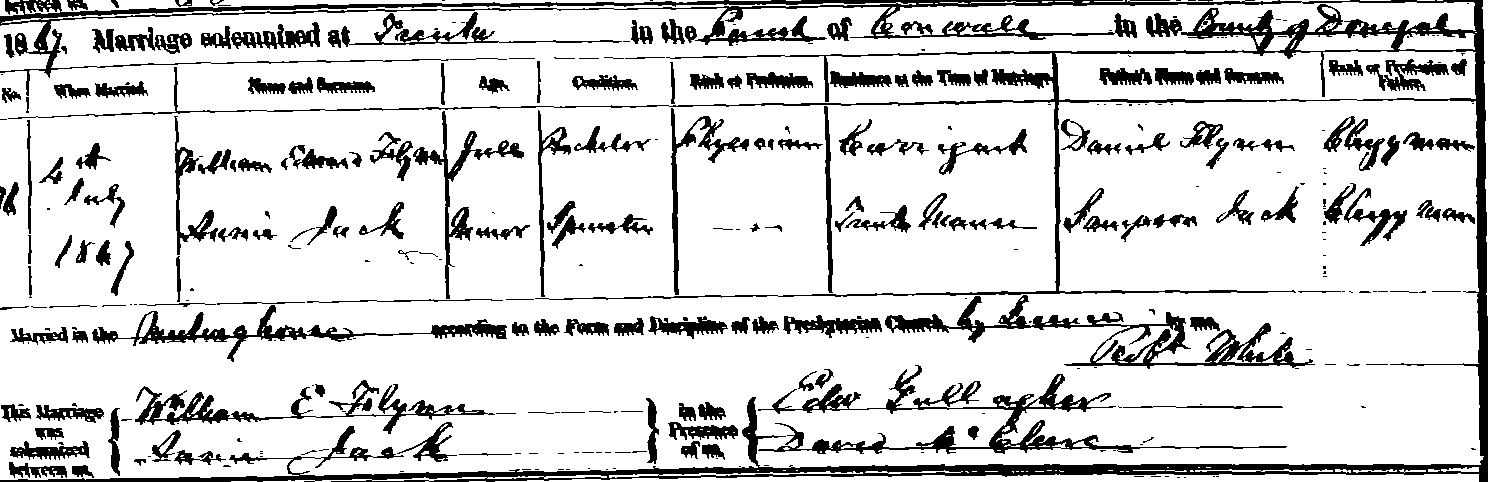 between us,
1867. Marriage solemnized at Trenta in the Parish of Conwall in the County of Donegal.
No. When Married. Name and Surname. Age. Condition. Rank or Profession. Residence at the Time of Marriage. Father's Name and Surname. Rank or Profession of Father.
4th July 1867 William Edward Flynn Full Bachelor Physician Carrigart Daniel Flynn Clergyman
Annie Jack Minor Spinster — Trenta Manse Sampson Jack Clergyman
Married in the Meetinghouse according to the Form and Discipline of the Presbyterian Church, by License by me,
Robt White
This Marriage was solemnized between us, William E. Flynn in the Presence of us, Edw Gallagher
Annie Jack David McClure